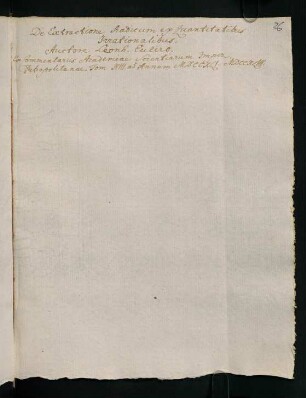 De Extractione Radicum ex Quantitatibus
Irrationalibus.
Auctore Leonh. Eulero.
Ex Commentariis Academiae Scientiarum Imper.
Petropolitanae. Tom. XIII ad Annum MDCCXLI. MDCCXLIII